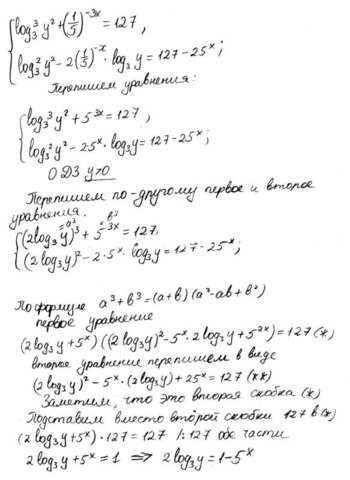 log₃³ y² + (1/5)^(-3x) = 127,
log₃² y² - 2(1/5)^(-x) · log₃ y = 127 - 25ˣ;
Перепишем уравнения:
log₃³ y² + 5^(3x) = 127,
log₃² y² - 2·5ˣ · log₃ y = 127 - 25ˣ;
ОДЗ y>0
Перепишем по-другому первое и второе
уравнения. = a³ = b³
(2log₃ y)³ + 5^(3x) = 127,
(2log₃ y)² - 2·5ˣ · log₃ y = 127 - 25ˣ;
По формуле a³+b³=(a+b)(a²-ab+b²)
первое уравнение
(2log₃ y+5ˣ)((2log₃ y)² - 5ˣ·2log₃ y + 5^(2x)) = 127 (*)
второе уравнение перепишем в виде
(2log₃ y)² - 5ˣ·(2log₃ y) + 25ˣ = 127 (**)
Заметим, что это вторая скобка (*)
Подставим вместо второй скобки 127 в (*)
(2log₃ y+5ˣ)·127 = 127 /:127 обе части
2log₃ y+5ˣ = 1 ⟹ 2log₃ y = 1-5ˣ